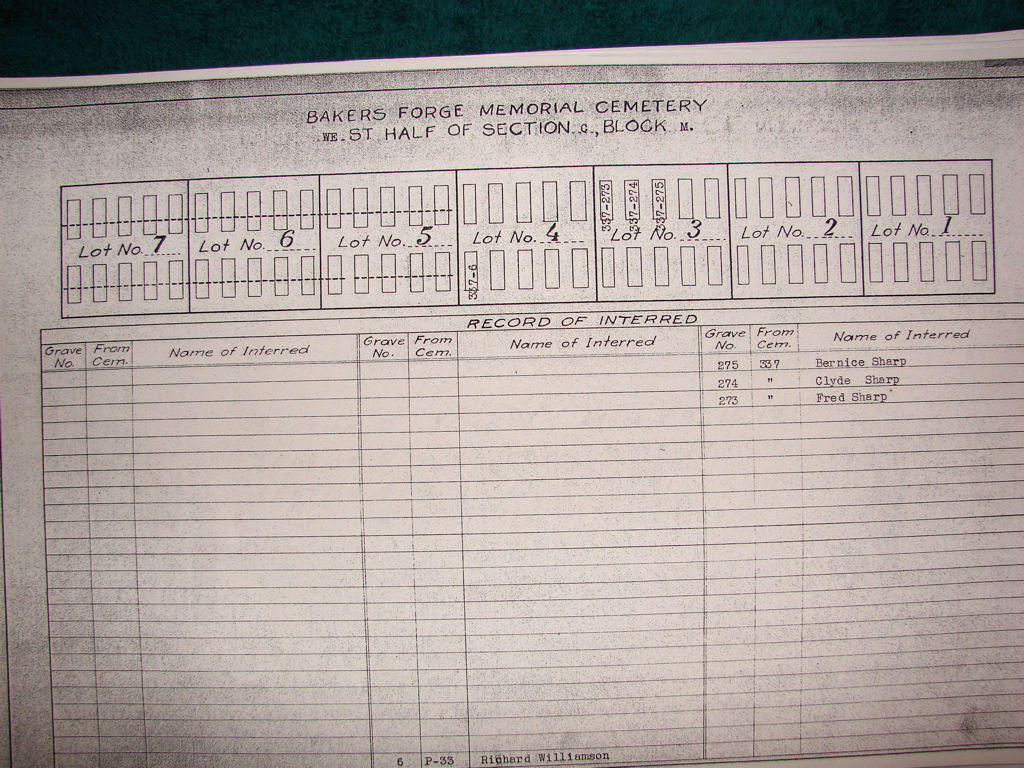 BAKERS FORGE MEMORIAL CEMETERY
WE. ST HALF OF SECTION C., BLOCK M.
337-273 337-274 337-275
Lot No. 7 Lot No. 6 Lot No. 5 Lot No. 4 Lot No. 3 Lot No. 2 Lot No. 1
337-6
RECORD OF INTERRED
Grave No. From Cem. Name of Interred Grave No. From Cem. Name of Interred Grave No. From Cem. Name of Interred
275 337 Bernice Sharp
274 " Clyde Sharp
273 " Fred Sharp
6 P-33 Richard Williamson